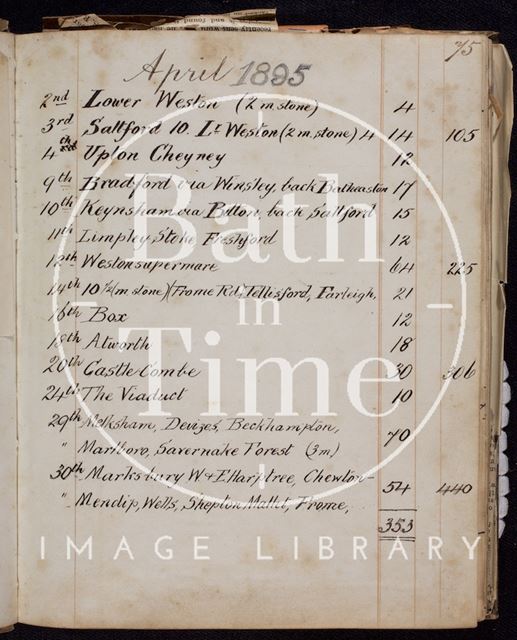 75
April 1895
2nd Lower Weston (2 m. stone) 4
3rd Saltford 10. Lr Weston (2 m. stone) 4 14 105
4th Upton Cheyney 12
9th Bradford via Winsley, back Batheaston 17
10th Keynsham via Bitton, back Saltford 15
11th Limpley Stoke, Freshford 12
12th Westonsupermare 64 225
14th 10½ (m. stone) (Frome Rd) Tellisford, Farleigh, 21
16th Box 12
18th Atworth 18
20th Castle Combe 30 306
24th The Viaduct 10
29th Melksham, Devizes, Beckhampton,
" Marlboro, Savernake Forest (3m) 70
30th Marksbury W & E Harptree, Chewton-
" Mendip, Wells, Shepton Mallet, Frome, 54 440
353
Bath
in
Time
IMAGE LIBRARY